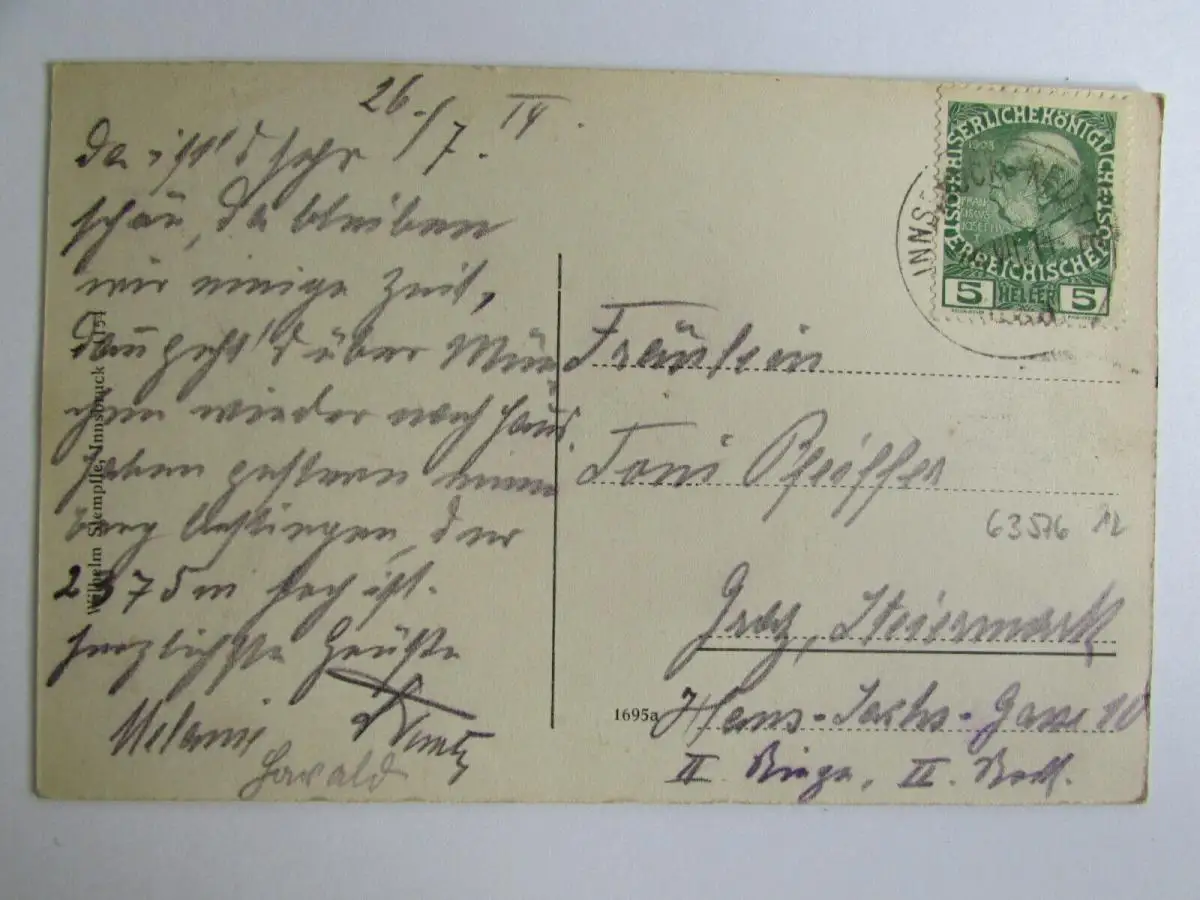 26./7. 14.
Da ist's sehr
schön, da bleiben
wir einige Zeit,
dann geht's über Mün
chen wieder nach Haus.
Haben gestern einen
Berg bestiegen, der
2375 m hoch ist.
Herzlichste Grüße
Melanie
Harald
Wilhelm Stempfle, Innsbruck
KAISERLICHE KÖNIGLICHE
ÖSTERREICHISCHE
1908
5 HELLER 5
INNSBRUCK
Fräulein
Toni Pfeiffer
63576
Graz, Steiermark
1695a
Hans-Sachs-Gasse 10
II. Stiege, II. Stock.